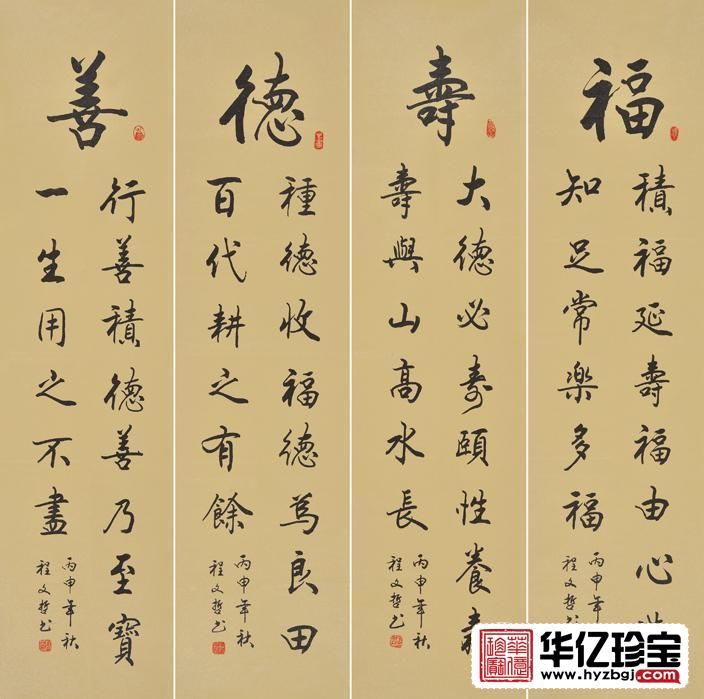 福
積福延壽福由心
知足常樂多福
丙申年
程文哲书
壽
大德必寿頤性養壽
壽與山高水長
丙申年秋
程文哲书
德
種德收福德爲良田
百代耕之有餘
丙申年秋
程文哲书
善
行善積德善乃至寶
一生用之不盡
丙申年秋
程文哲书
华亿珍宝
www.hyzbgj.com